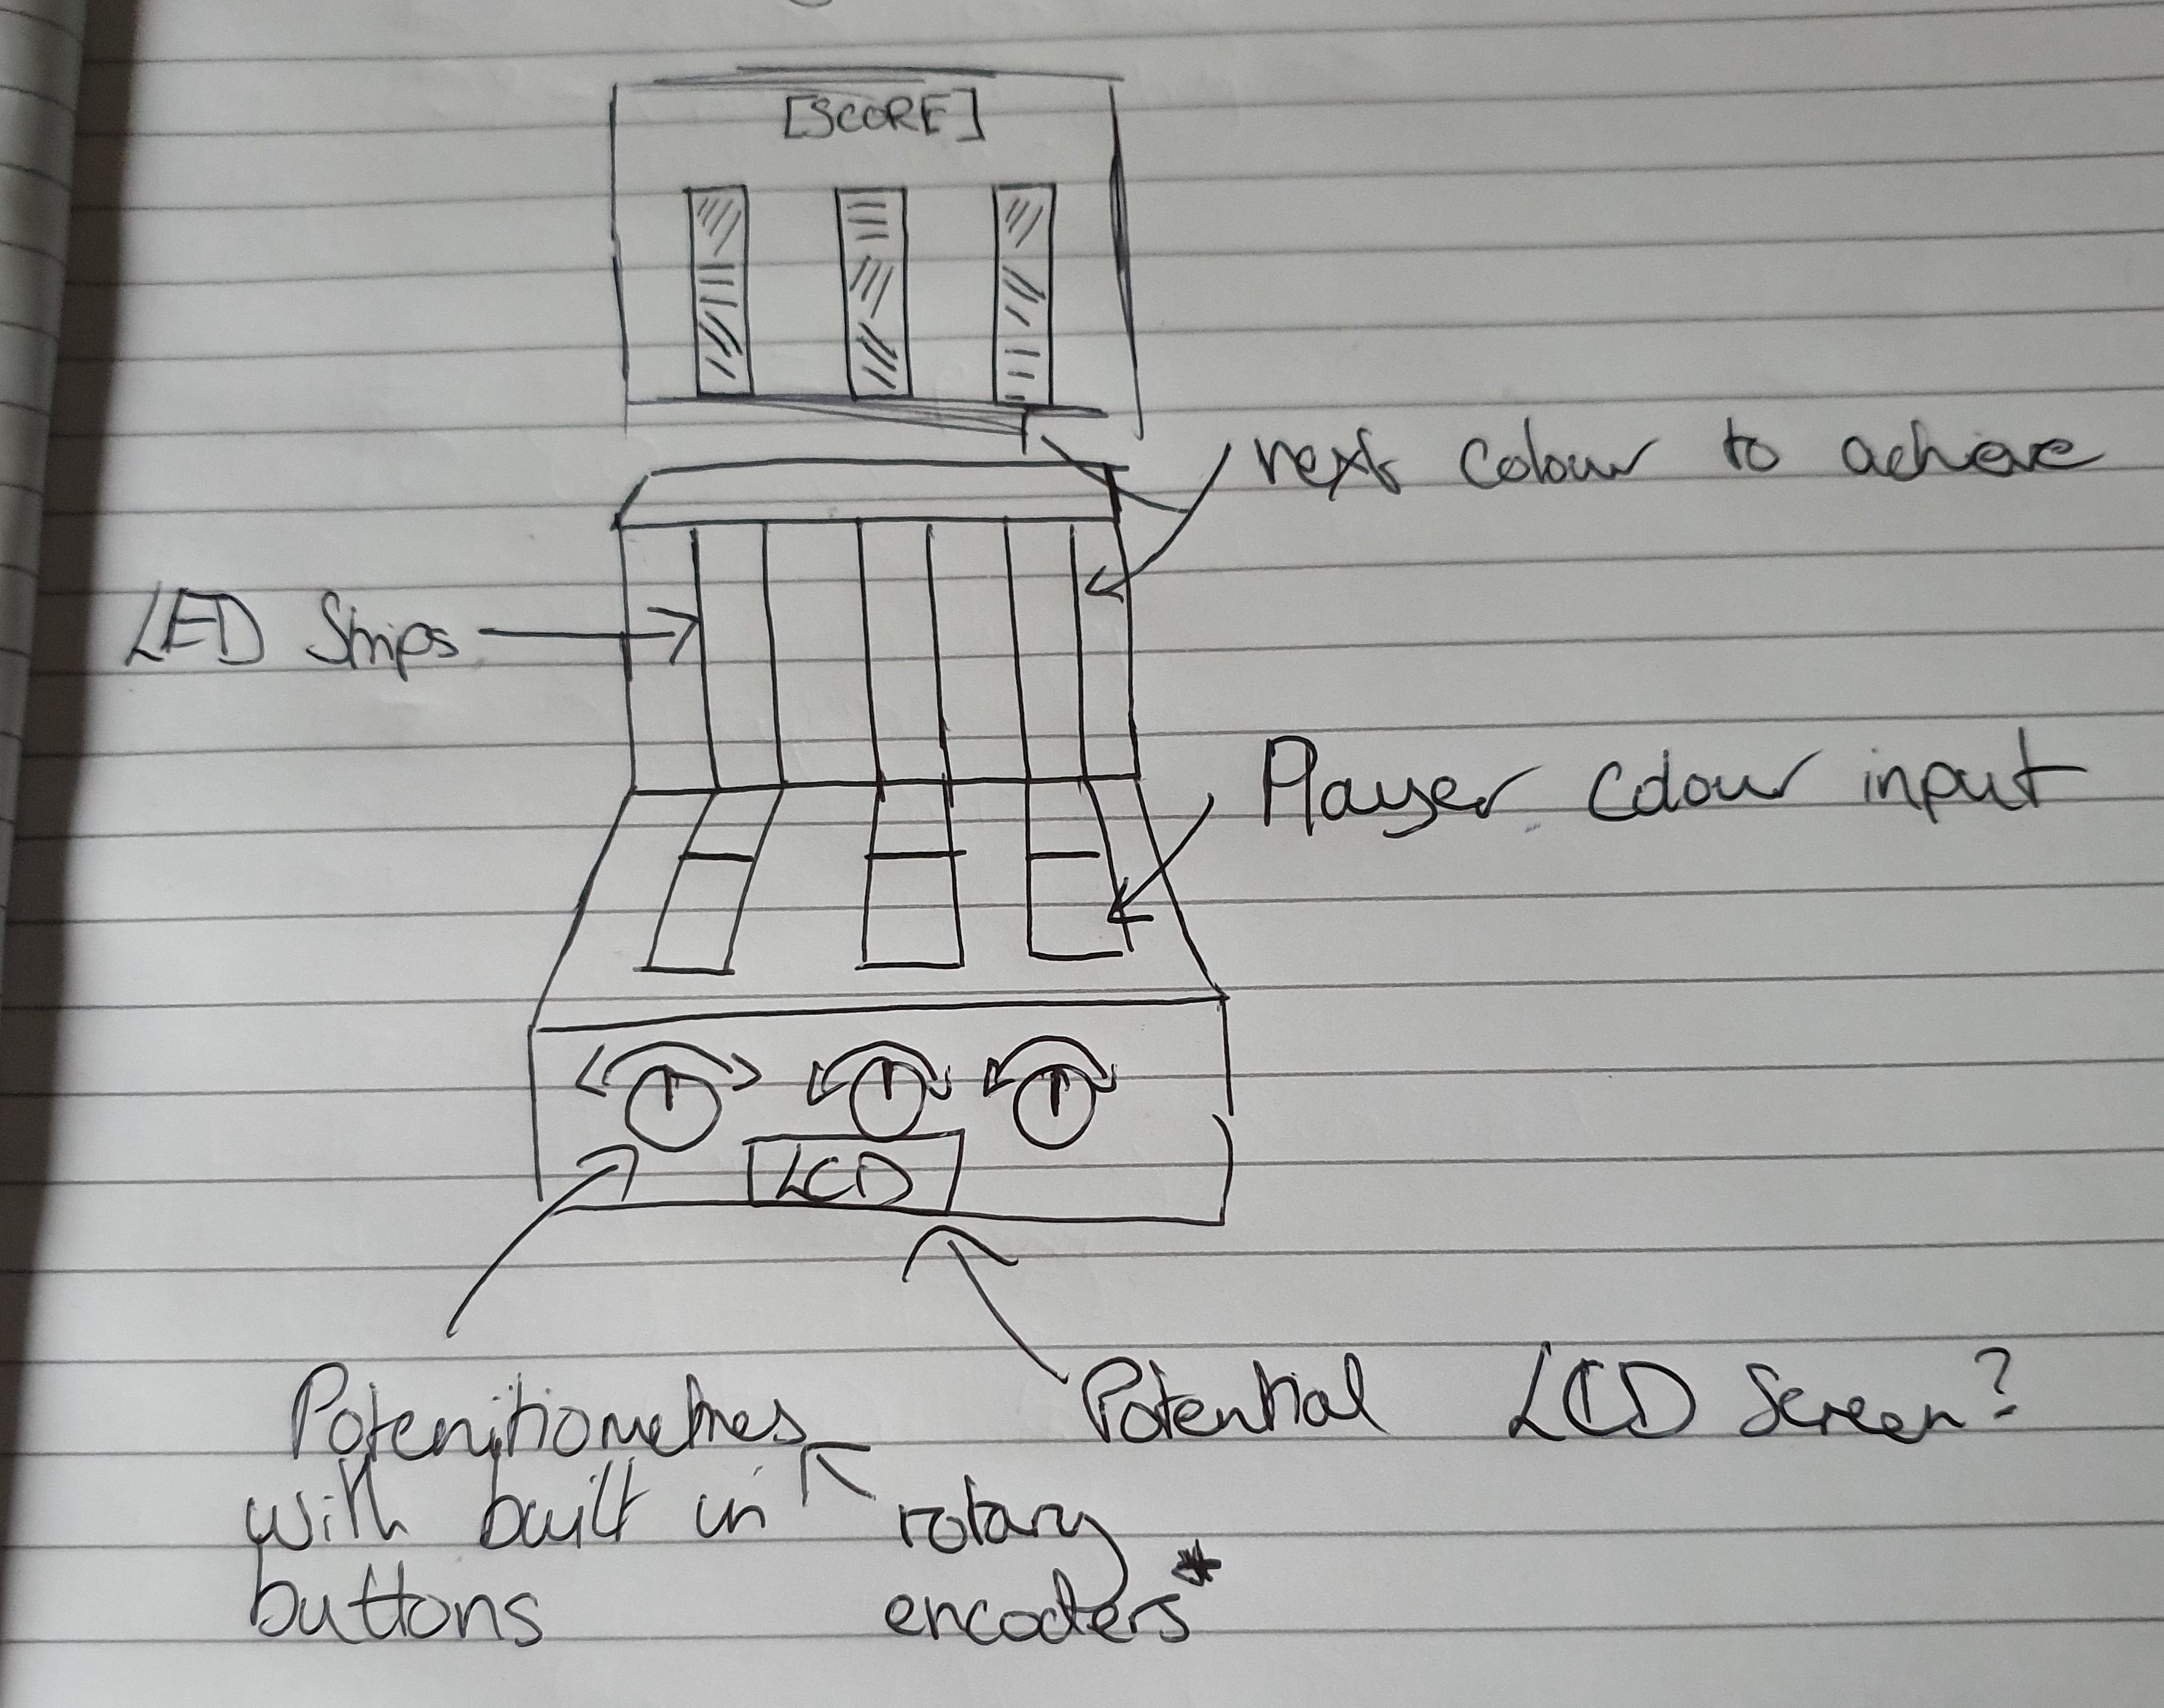 [SCORE]
next colour to achieve
LED Strips
Player colour input
LCD
Potenitiometres
with built in
buttons
rotary
encoders*
Potential LCD Screen?